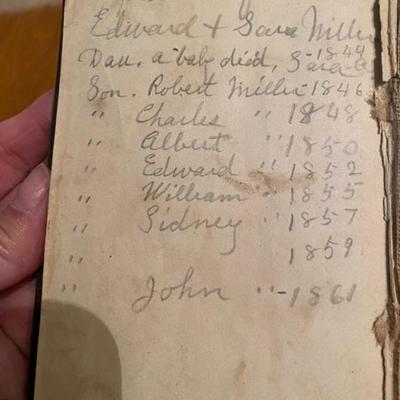 Edward + Sara Miller
Dau. a baby died, Sara -1844
Son. Robert Miller-1846
" Charles " 1848
" Albert " 1850
" Edward " 1852
" William " 1855
" Sidney " 1857
" 1859
" John " -1861